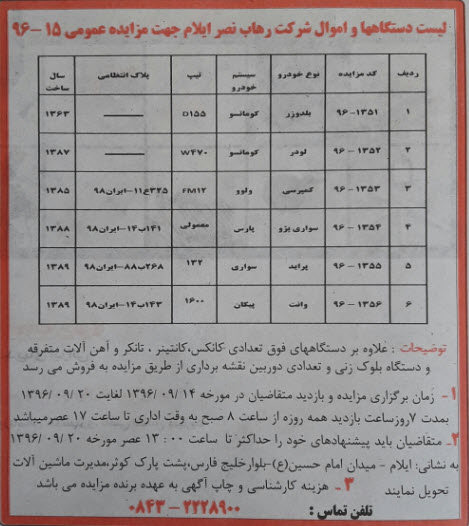 لیست دستگاهها و اموال شرکت رهاب نصر ایلام جهت مزایده عمومی ۱۵-۹۶
ردیف کد مزایده نوع خودرو سیستم خودرو تیپ پلاک انتظامی سال ساخت
۱ ۱۳۵۱-۹۶ بلدوزر کوماتسو D۱۵۵ ــــــ ۱۳۶۳
۲ ۱۳۵۲-۹۶ لودر کوماتسو W۴۷۰ ــــــ ۱۳۸۷
۳ ۱۳۵۳-۹۶ کمپرسی ولوو FM۱۲ ۳۲۵ع۱۱-ایران۹۸ ۱۳۸۵
۴ ۱۳۵۴-۹۶ سواری پژو پارس معمولی ۱۴۱ب۱۴-ایران۹۸ ۱۳۸۸
۵ ۱۳۵۵-۹۶ پراید سواری ۱۳۲ ۲۶۸ب۸۸-ایران۹۸ ۱۳۸۹
۶ ۱۳۵۶-۹۶ وانت پیکان ۱۶۰۰ ۱۴۳ب۱۴-ایران۹۸ ۱۳۸۹
توضیحات : علاوه بر دستگاههای فوق تعدادی کانکس،کانتینر ، تانکر و آهن آلات متفرقه
و دستگاه بلوک زنی و تعدادی دوربین نقشه برداری از طریق مزایده به فروش می رسد
۱- زمان برگزاری مزایده و بازدید متقاضیان در مورخه ۱۴ /۰۹ /۱۳۹۶ لغایت ۲۰ /۰۹ /۱۳۹۶
بمدت ۷روزساعت بازدید همه روزه از ساعت ۸ صبح به وقت اداری تا ساعت ۱۷ عصرمیباشد
۲- متقاضیان باید پیشنهادهای خود را حداکثر تا ساعت ۰۰ : ۱۳ عصر مورخه ۲۰ /۰۹ /۱۳۹۶
به نشانی: ایلام - میدان امام حسین(ع)-بلوارخلیج فارس،پشت پارک کوثر،مدیرت ماشین آلات
تحویل نمایند ۳- هزینه کارشناسی و چاپ آگهی به عهده برنده مزایده می باشد
تلفن تماس : ۲۲۲۸۹۰۰ - ۰۸۴۳